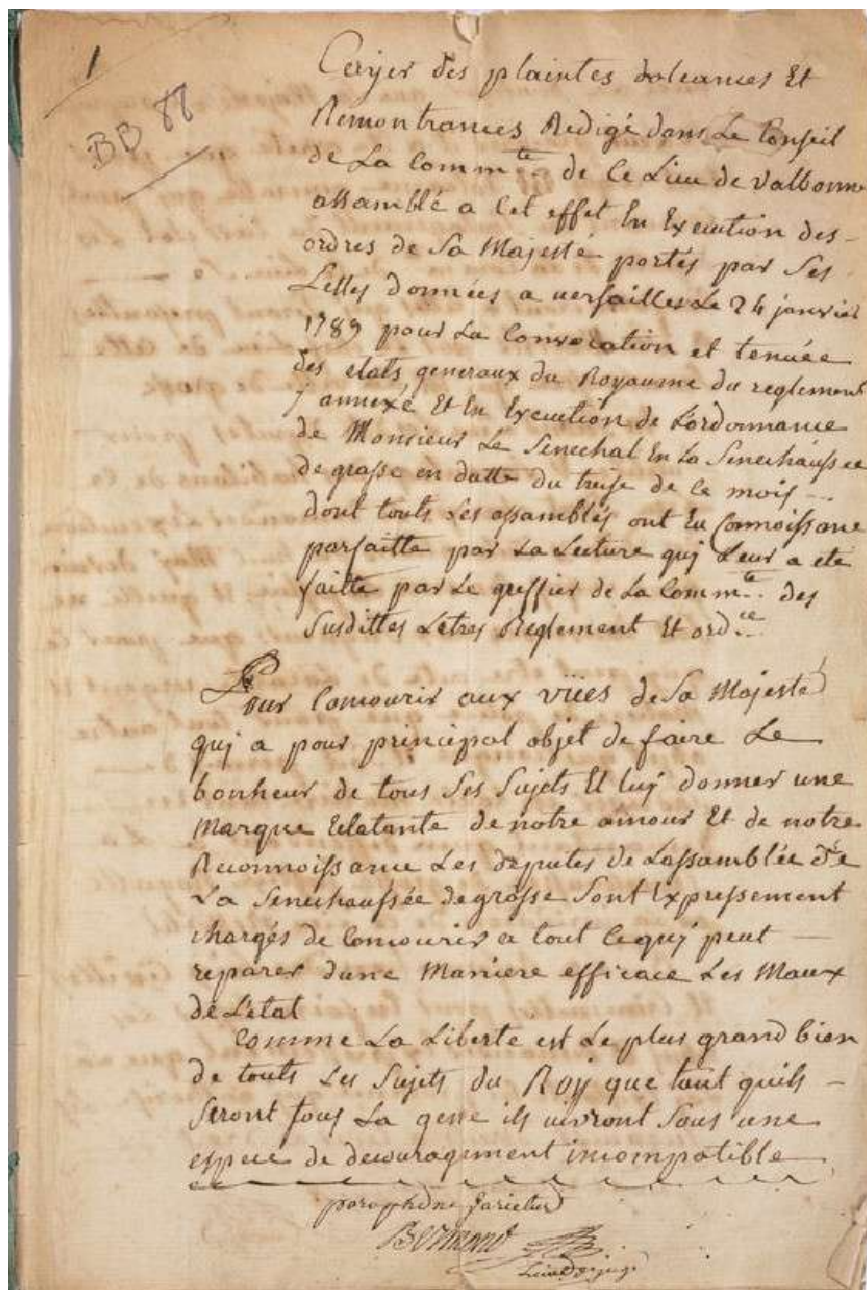 1
BB 88
Cayer des plaintes doleances Et
Remontrances Redigé dans Le Conseil
de La Comm.te de Ce Lieu de Valbonne
assamblé a Cet effet En Execution des -
ordres de Sa Majesté portés par Ses
Lettres données a versailles Le 24 janvier
1789 pour La Convocation et tenuée
des etats generaux du Royaume du reglement
y annexé Et En Execution de Lordonnance
de Monsieur Le Senechal En La Senechaussee
de grasse en datte du treise de ce mois -
dont touts Les assamblés ont Eu Connoissance
parfaitte par La Lecture quj Leur a eté
faitte par Le greffier de La Comm.te des
Susdittes Letres Reglement Et ord.ce
Pour Concourir aux vües de Sa Majesté
quj a pour principal objet de faire Le
bonheur de tous Ses Sujets Et luj donner une
Marque Eclatante de notre amour Et de notre
Reconnoissance Les deputes de Lassamblée de
La Senechaussée de grasse Sont Expressement
chargés de Concourir a tout Cequj peut -
reparer dune Maniere efficace Les Maux
de Létat
Comme La Liberte est Le plus grand bien
de touts Les Sujets du Roy que tant quils -
Seront sous La gene ils vivront Sous une
espece de decouragement incompatible
Bermond